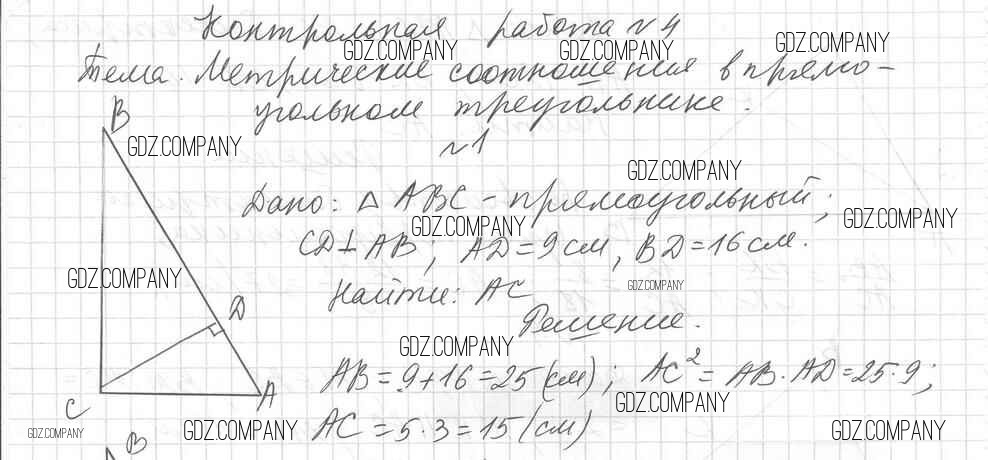 Контрольная работа №4
Тема. Метрические соотношения в прямо-
угольном треугольнике.
№1
Дано: △ ABC - прямоугольный;
CD⊥AB; AD=9см, BD=16см.
Найти: AC
Решение.
AB=9+16=25(см); AC²=AB·AD=25·9;
AC=5·3=15(см)
B
D
C
A
B
GDZ.COMPANY
GDZ.COMPANY
GDZ.COMPANY
GDZ.COMPANY
GDZ.COMPANY
GDZ.COMPANY
GDZ.COMPANY
GDZ.COMPANY
GDZ.COMPANY
GDZ.COMPANY
GDZ.COMPANY
GDZ.COMPANY
GDZ.COMPANY
GDZ.COMPANY